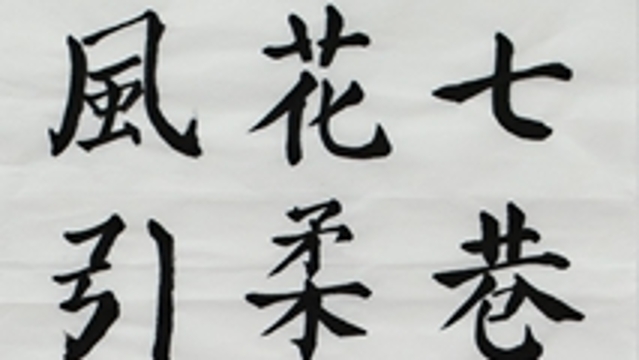 七巷
花柔
風引